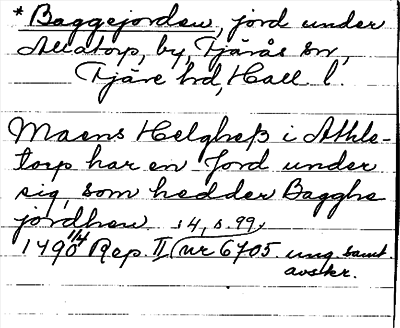 * Baggejorden, jord under
Allatorp, by, Tjärås sn,
Fjäre hd, Hall. l.
Maens Helgheß i Athle-
torp har en Jord under
sig, som hedder Bagghe
jordhen s 4, s. 99,
1490 1/4 Rep. II (nr 6705 ung. samt.
avskr.